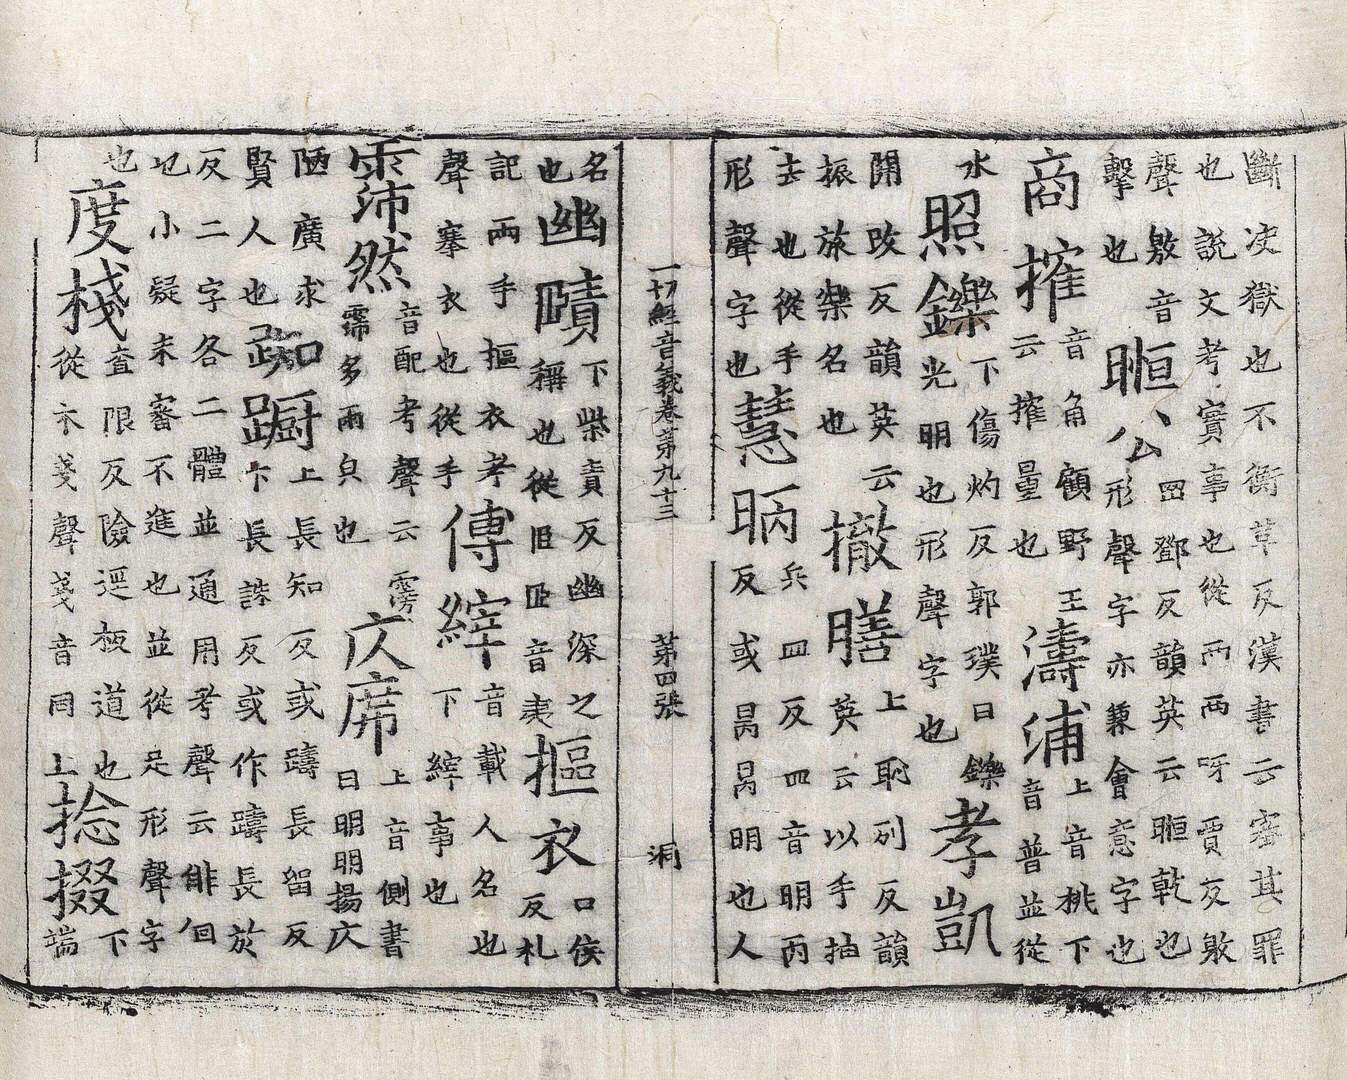 斷决獄也不衡革反漢書云審其罪
也說文考實事也從襾襾呀賈反敫
聲敫音
擊也
暅公
罡鄧反韻英云暅乾也
形聲字亦兼會意字也
商搉
音角顧野王
云搉量也
濤浦
上音桃下
音普並從
水
照鑠
下傷灼反郭璞曰鑠
光明也形聲字也
孝凱
開改反韻英云
振旅樂名也
撤膳
上恥列反韻
英云以手抽
去也從手
形聲字也
慧昞
兵皿反皿音明丙
反或昺昺明也人
一切經音義卷第九十三 第四張 洞
名
也
幽賾
下柴責反幽深之
稱也從𦣞𦣞音夷
摳衣
口侯
反札
記兩手摳衣考
聲搴衣也從手
傳縡
音載人名也
下縡事也
霈然
音配考聲云霶
霈多雨皃也
仄席
上音側書
曰明明揚仄
陋廣求
賢人也
踟蹰
上長知反或躊長留反
下長誅反或作躊長於
反二字各二體並通用考聲云俳佪
也小疑未審不進也並從足形聲字
也
度棧
查限反險逕板道也
從木戔聲戔音同上
捻掇
下
端